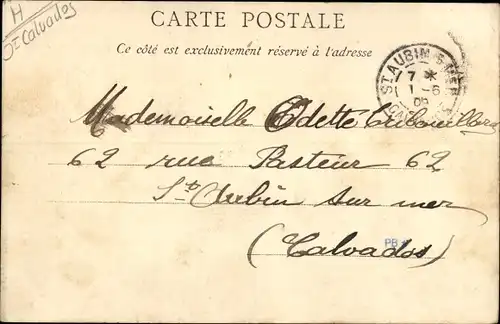 H
St Calvados
CARTE POSTALE
Ce côté est exclusivement réservé à l'adresse
ST AUBIN S MER
7 *
1 - 6
05
Mademoiselle Odette
62 rue Pasteur 62
St Aubin sur mer
(Calvados)
PB